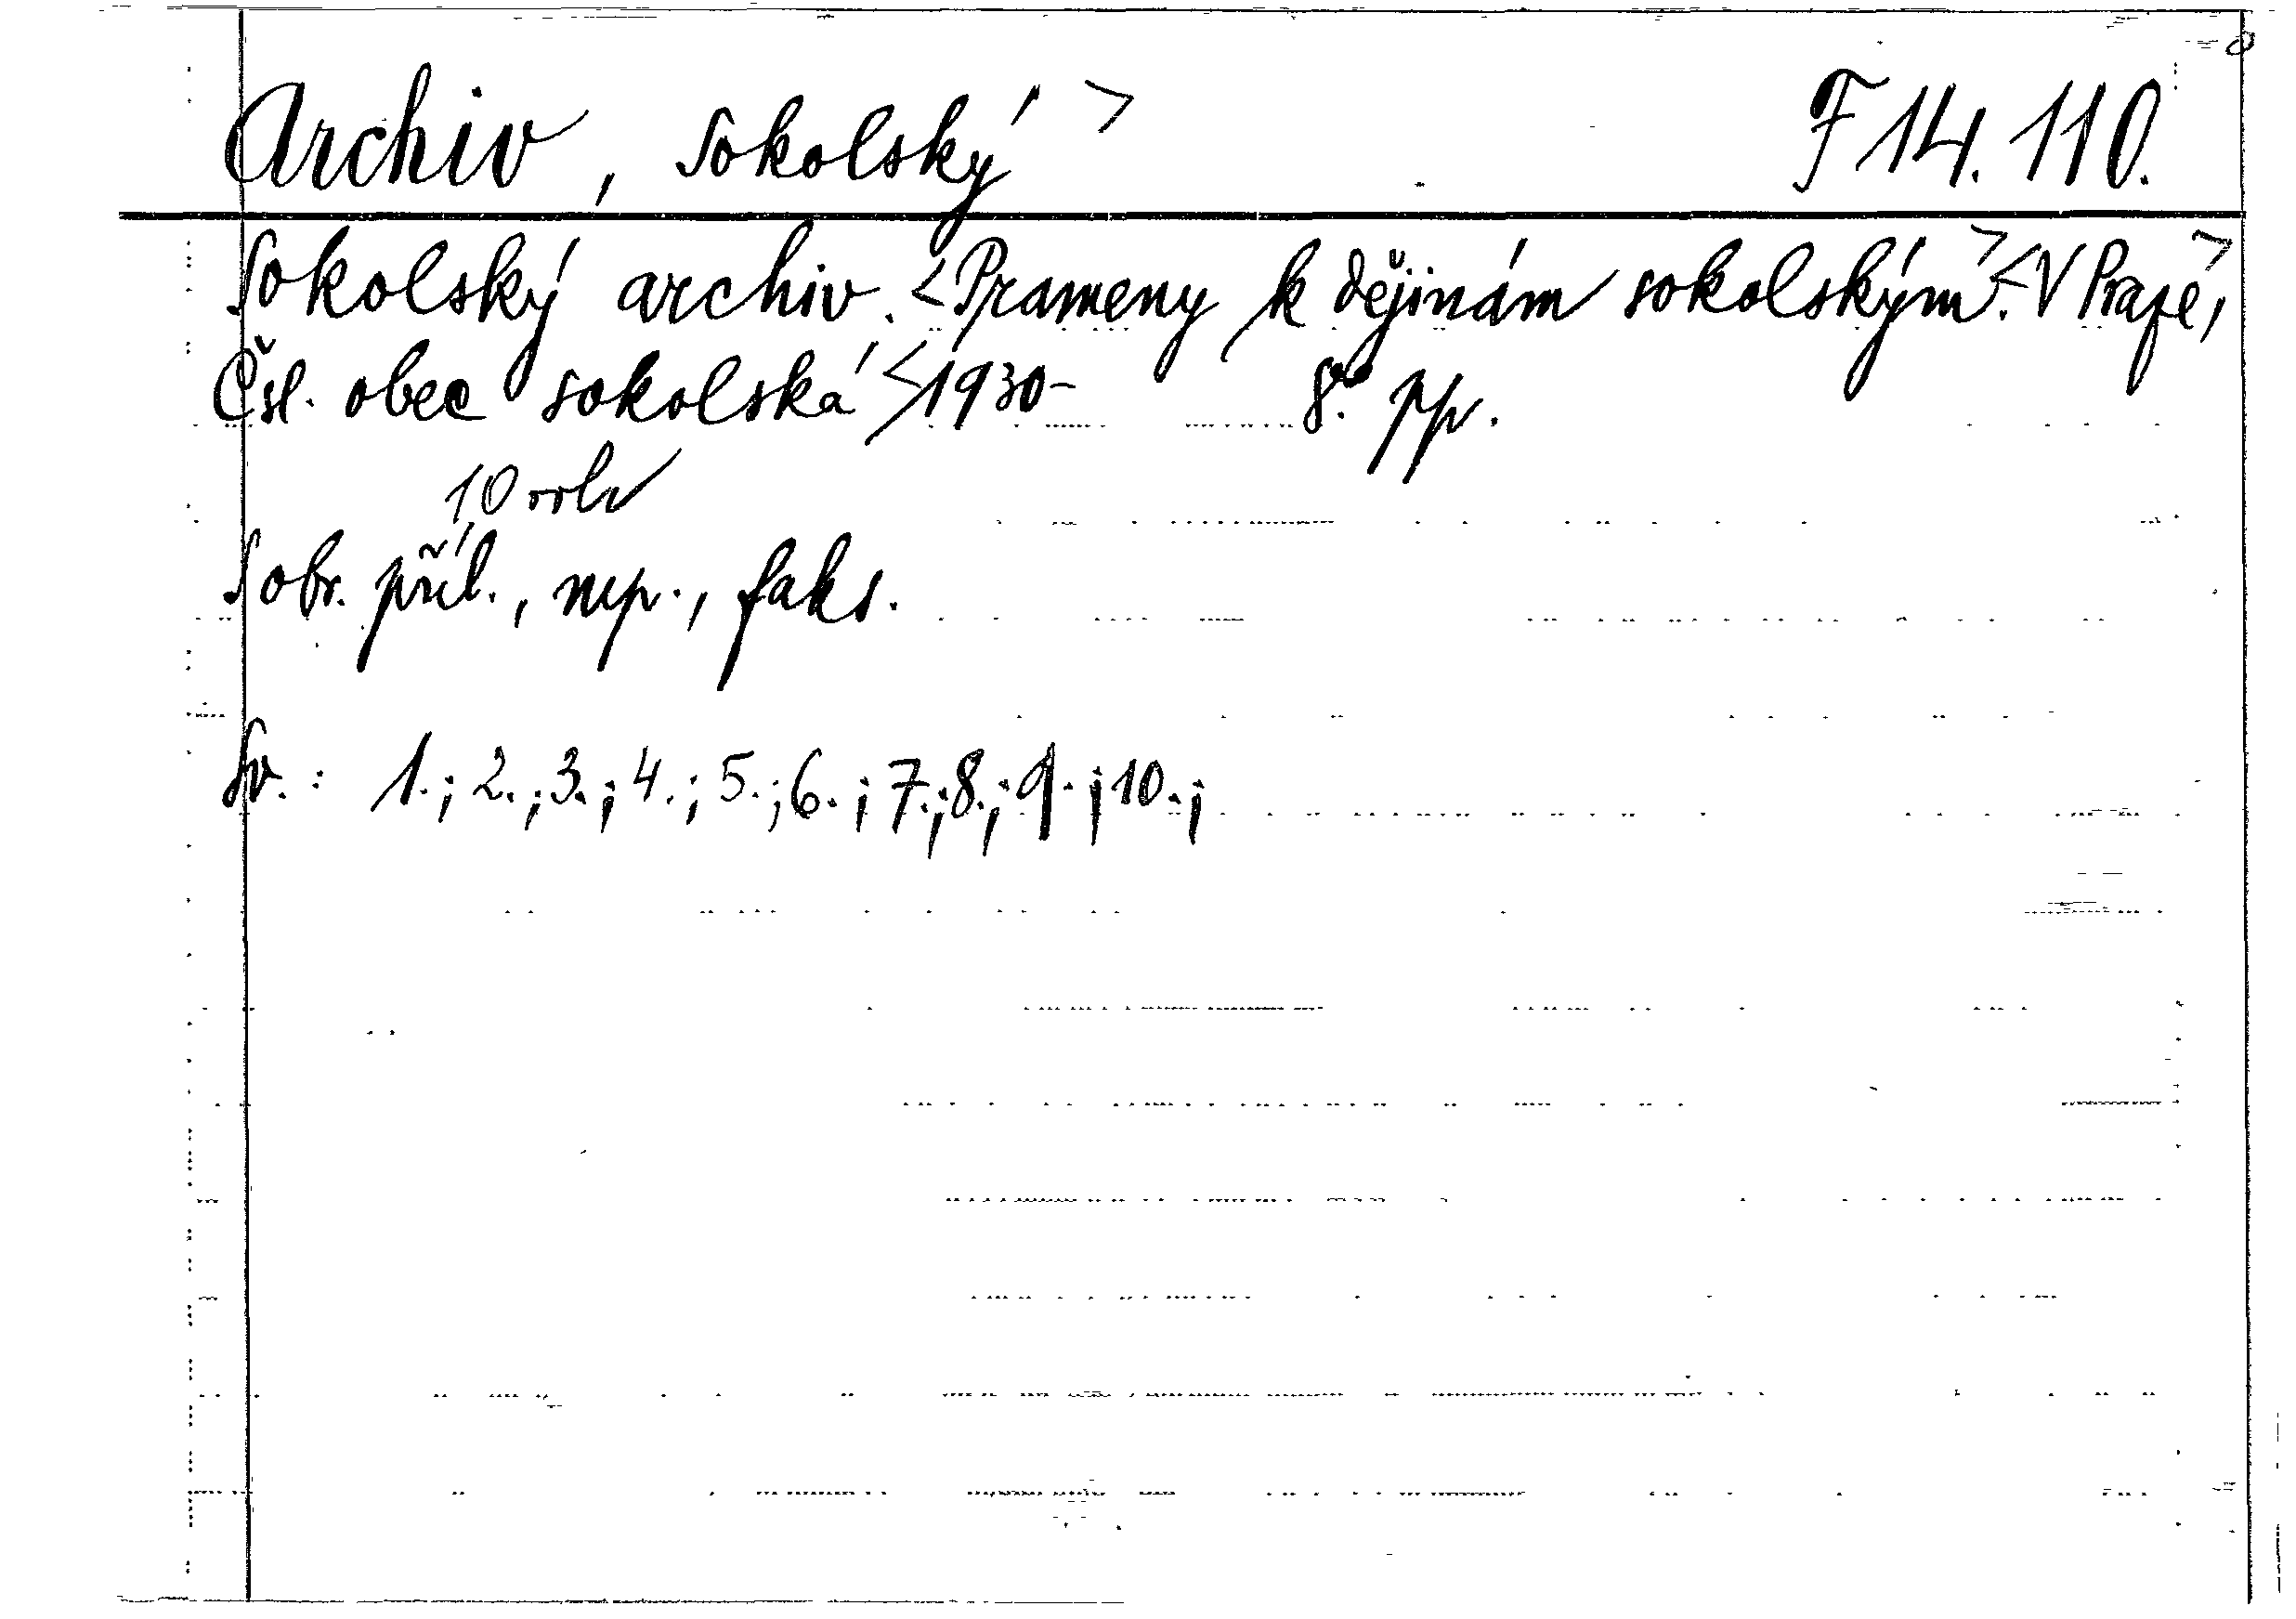 Archiv, sokolský > F 14.110.
Sokolský archiv. <Prameny k dějinám sokolským.> <V Praze,>
Čsl. obec sokolská <1930- 8.° pp.
S obr. příl., mp., faks.
Sv.: 1.; 2.; 3.; 4.; 5.; 6.; 7.; 8.; 9.; 10.;